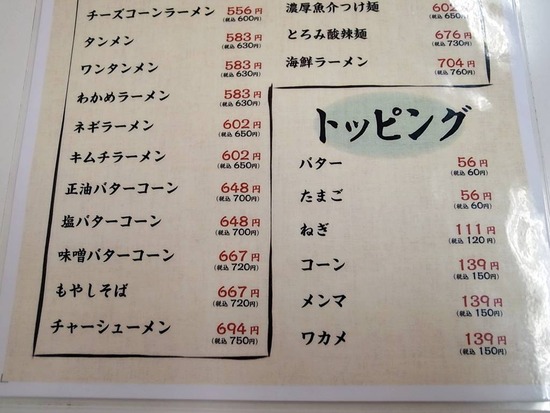 チーズコーンラーメン 556円
(税込 600円)
タンメン 583円
(税込 630円)
ワンタンメン 583円
(税込 630円)
わかめラーメン 583円
(税込 630円)
ネギラーメン 602円
(税込 650円)
キムチラーメン 602円
(税込 650円)
正油バターコーン 648円
(税込 700円)
塩バターコーン 648円
(税込 700円)
味噌バターコーン 667円
(税込 720円)
もやしそば 667円
(税込 720円)
チャーシューメン 694円
(税込 750円)
濃厚魚介つけ麺 602
(税込 650円)
とろみ酸辣麺 676円
(税込 730円)
海鮮ラーメン 704円
(税込 760円)
トッピング
バター 56円
(税込 60円)
たまご 56円
(税込 60円)
ねぎ 111円
(税込 120円)
コーン 139円
(税込 150円)
メンマ 139円
(税込 150円)
ワカメ 139円
(税込 150円)